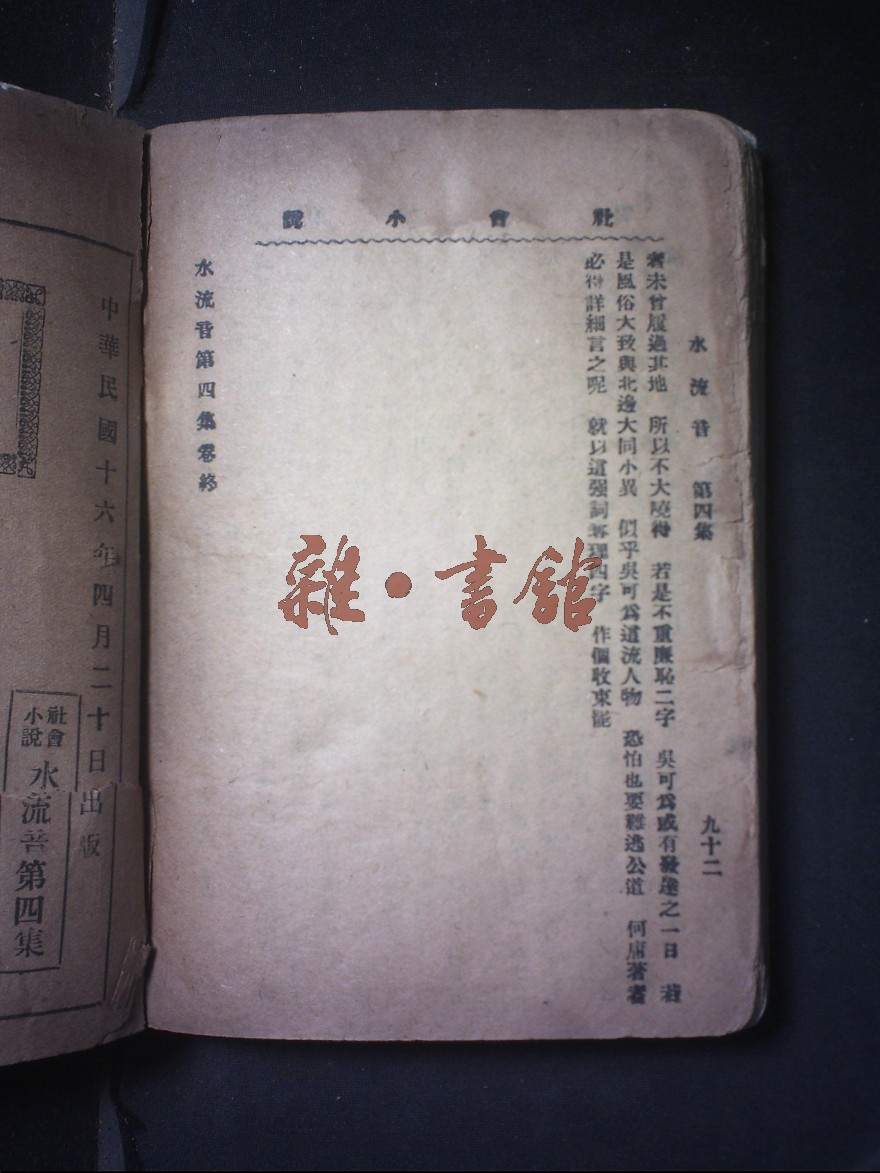 社會小說
水流音 第四集 九十二
者未曾履過其地 所以不大曉得 若是不重廉恥二字 吳可為或有發達之一日 若
是風俗大致與北邊大同小異 似乎吳可為這流人物 恐怕也要難逃公道 何庸著者
必得詳細言之呢 就以這强詞奪理四字 作個收束罷
水流音第四集卷終
雜·書館
中華民國十六年四月二十日出版
社會小說
水流音第四集